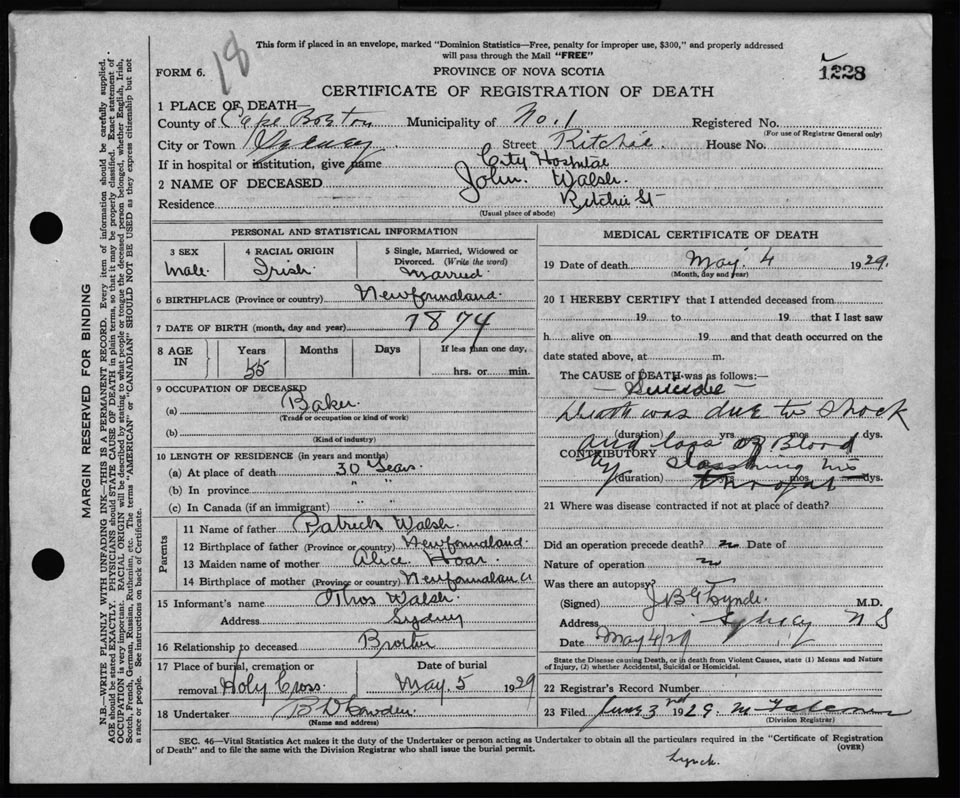 18
This form if placed in an envelope, marked "Dominion Statistics—Free, penalty for improper use, $300," and properly addressed
will pass through the Mail "FREE"
FORM 6.
PROVINCE OF NOVA SCOTIA
1228
CERTIFICATE OF REGISTRATION OF DEATH
1 PLACE OF DEATH
County of Cape Breton Municipality of No. 1 Registered No.
(For use of Registrar General only)
City or Town Sydney Street Ritchie House No.
If in hospital or institution, give name City Hospital
2 NAME OF DECEASED John Walsh.
Residence Ritchie St
(Usual place of abode)
PERSONAL AND STATISTICAL INFORMATION
3 SEX
Male.
4 RACIAL ORIGIN
Irish.
5 Single, Married, Widowed or
Divorced. (Write the word)
Married.
6 BIRTHPLACE (Province or country) Newfoundland.
7 DATE OF BIRTH (month, day and year) 1874
8 AGE
IN
Years
55
Months
Days
If less than one day,
hrs. or min.
9 OCCUPATION OF DECEASED
(a) Baker.
(Trade or occupation or kind of work)
(b)
(Kind of industry)
10 LENGTH OF RESIDENCE (in years and months)
(a) At place of death 30 Years.
(b) In province " "
(c) In Canada (if an immigrant) " "
Parents
11 Name of father Patrick Walsh.
12 Birthplace of father (Province or country) Newfoundland.
13 Maiden name of mother Alice Hoar.
14 Birthplace of mother (Province or country) Newfoundland
15 Informant's name Walsh.
Address Sydney
16 Relationship to deceased Brother
17 Place of burial, cremation or
removal Holy Cross.
Date of burial
May. 5 1929
18 Undertaker
(Name and address)
MEDICAL CERTIFICATE OF DEATH
19 Date of death May 4 1929.
(Month, day and year)
20 I HEREBY CERTIFY that I attended deceased from
19 to 19 that I last saw
h alive on 19 and that death occurred on the
date stated above, at m.
The CAUSE of DEATH was as follows:—
— Suicide —
Death was due to shock
(duration) yrs. mos. dys.
and loss of Blood
CONTRIBUTORY
by slasshing his
throat
(duration) mos. dys.
21 Where was disease contracted if not at place of death?
Did an operation precede death? n Date of
Nature of operation n
Was there an autopsy?
(Signed) Lynch. M.D.
Address Sydney N S
Date May 4/29
State the Disease causing Death, or in death from Violent Causes, state (1) Means and Nature
of Injury, (2) whether Accidental, Suicidal or Homicidal.
22 Registrar's Record Number
23 Filed June 3rd 1929
(Division Registrar)
SEC. 46—Vital Statistics Act makes it the duty of the Undertaker or person acting as Undertaker to obtain all the particulars required in the "Certificate of Registration
of Death" and to file the same with the Division Registrar who shall issue the burial permit.
(OVER)
Lynch.
MARGIN RESERVED FOR BINDING
N.B.—WRITE PLAINLY WITH UNFADING INK—THIS IS A PERMANENT RECORD. Every item of information should be carefully supplied.
AGE should be stated EXACTLY. PHYSICIANS should STATE CAUSE OF DEATH in plain terms, so that it may be properly classified. Exact statement of
OCCUPATION is very important. RACIAL ORIGIN will be described by stating to what people or tongue the deceased person belonged, whether English, Irish,
Scotch, French, German, Russian, Ruthenian, etc. The terms "AMERICAN" or "CANADIAN" SHOULD NOT BE USED as they express citizenship but not
a race or people. See instructions on back of Certificate.